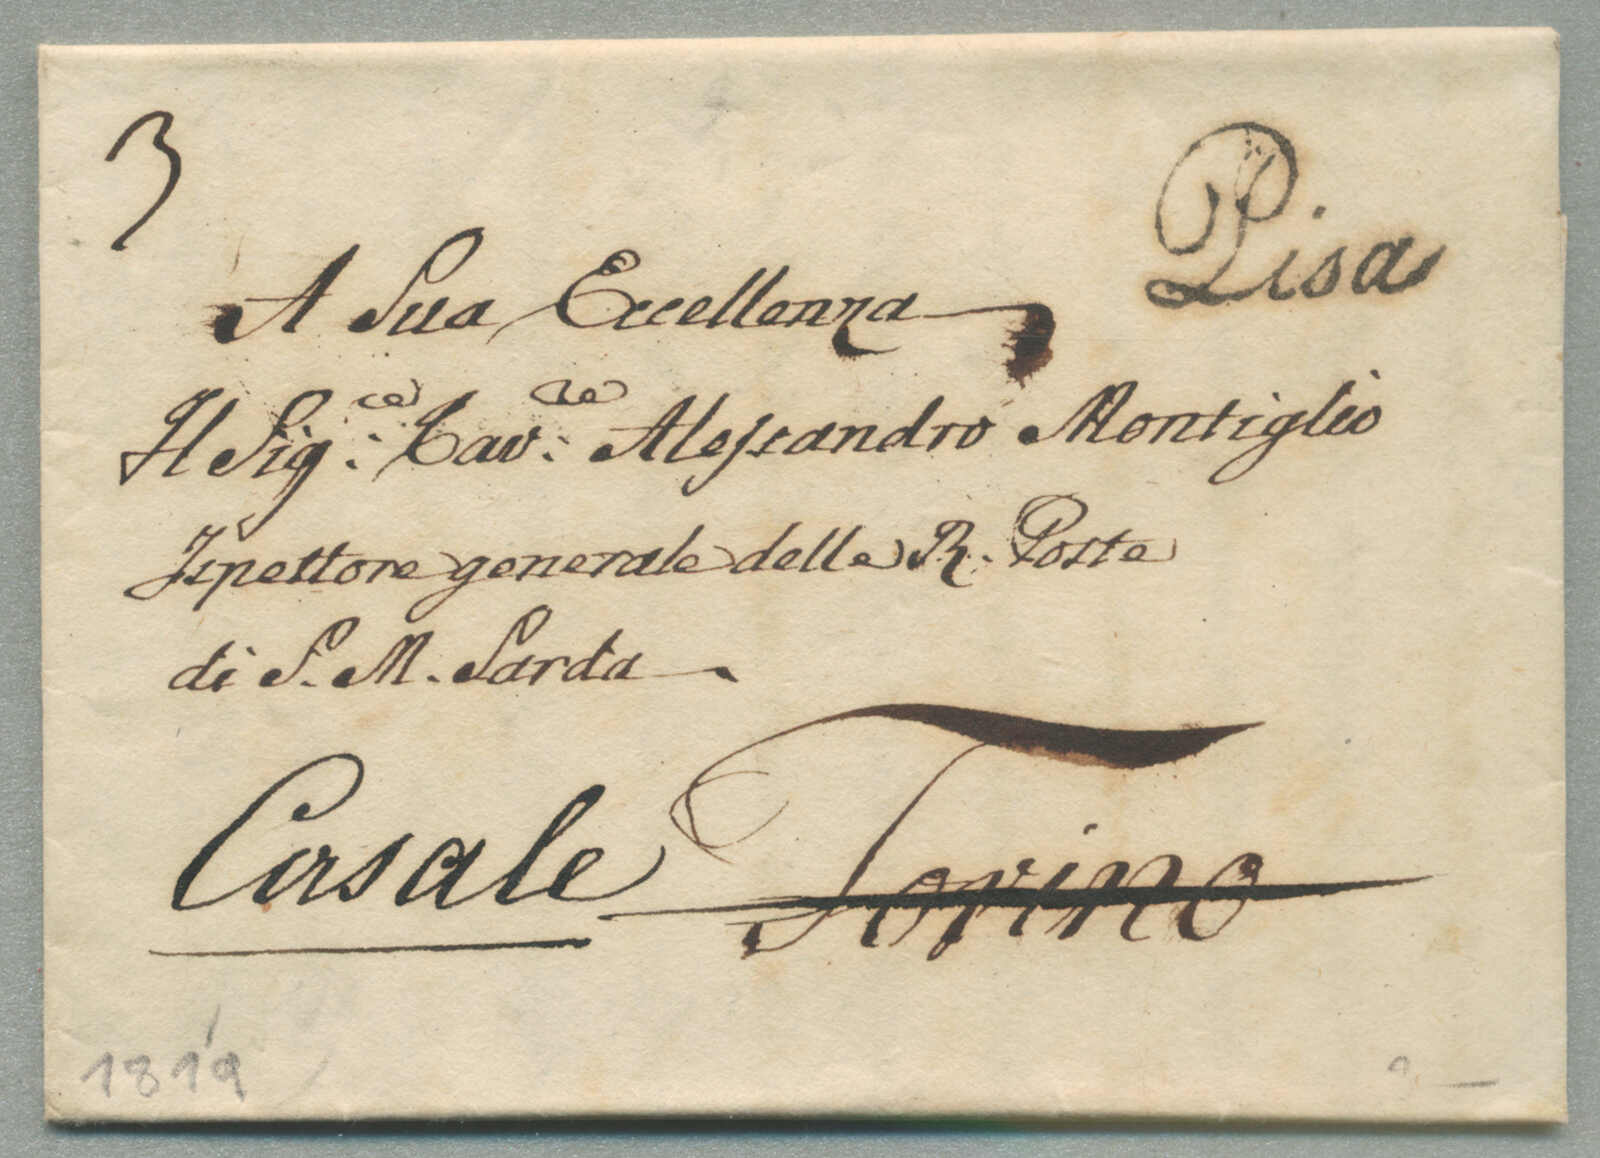 3
Pisa
A Sua Eccellenza
Il Sig.re Cav.re Alessandro Montiglio
Ispettore generale delle R. Poste
di S. M. Sarda
Casale Torino
1819